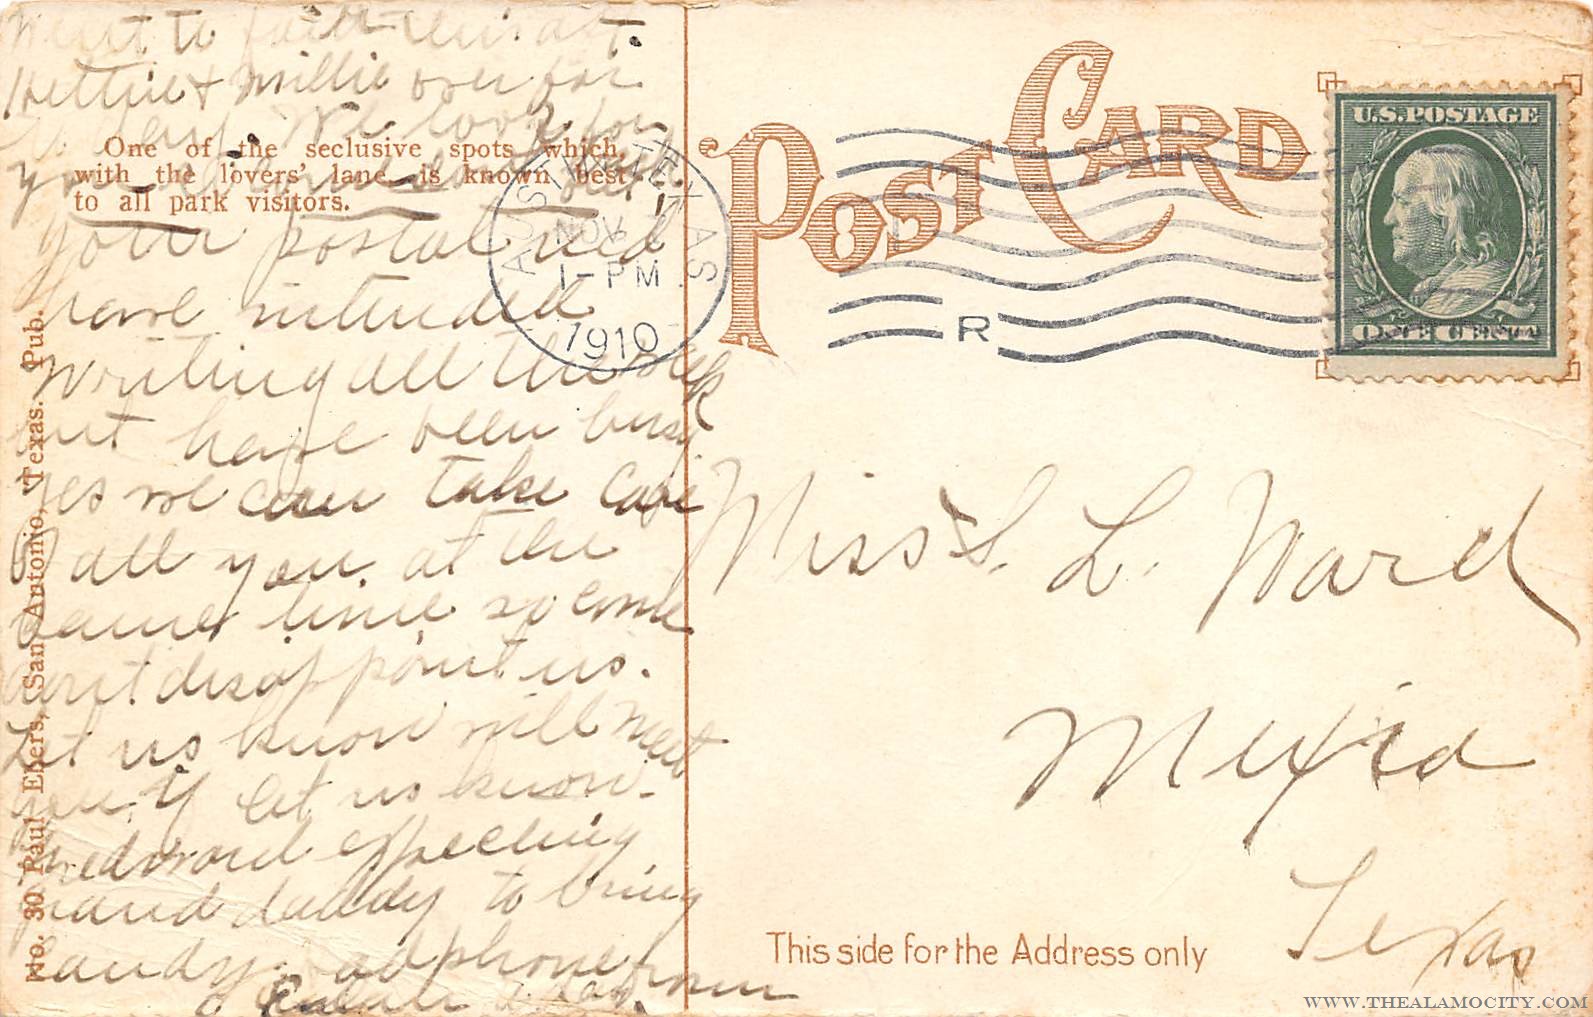 Went to
Hettie & Millie over for
We look for
you
your postal rec'd
have intended
writing all the week
but have been busy
Yes we can take care
of all you at the
same time so come
don't disappoint us.
Let us know will meet
you if let us know.
Edward expecting
grand daddy to bring
candy. phone from
One of the seclusive spots which,
with the lovers' lane is known best
to all park visitors.
No. 30 Paul Ebers, San Antonio, Texas. Pub.
POST CARD
AUSTIN, TEXAS
NOV
1-PM
1910
R
U.S. POSTAGE
ONE CENT
Miss S. L. Ward
Mexia
Texas
This side for the Address only
WWW.THEALAMOCITY.COM